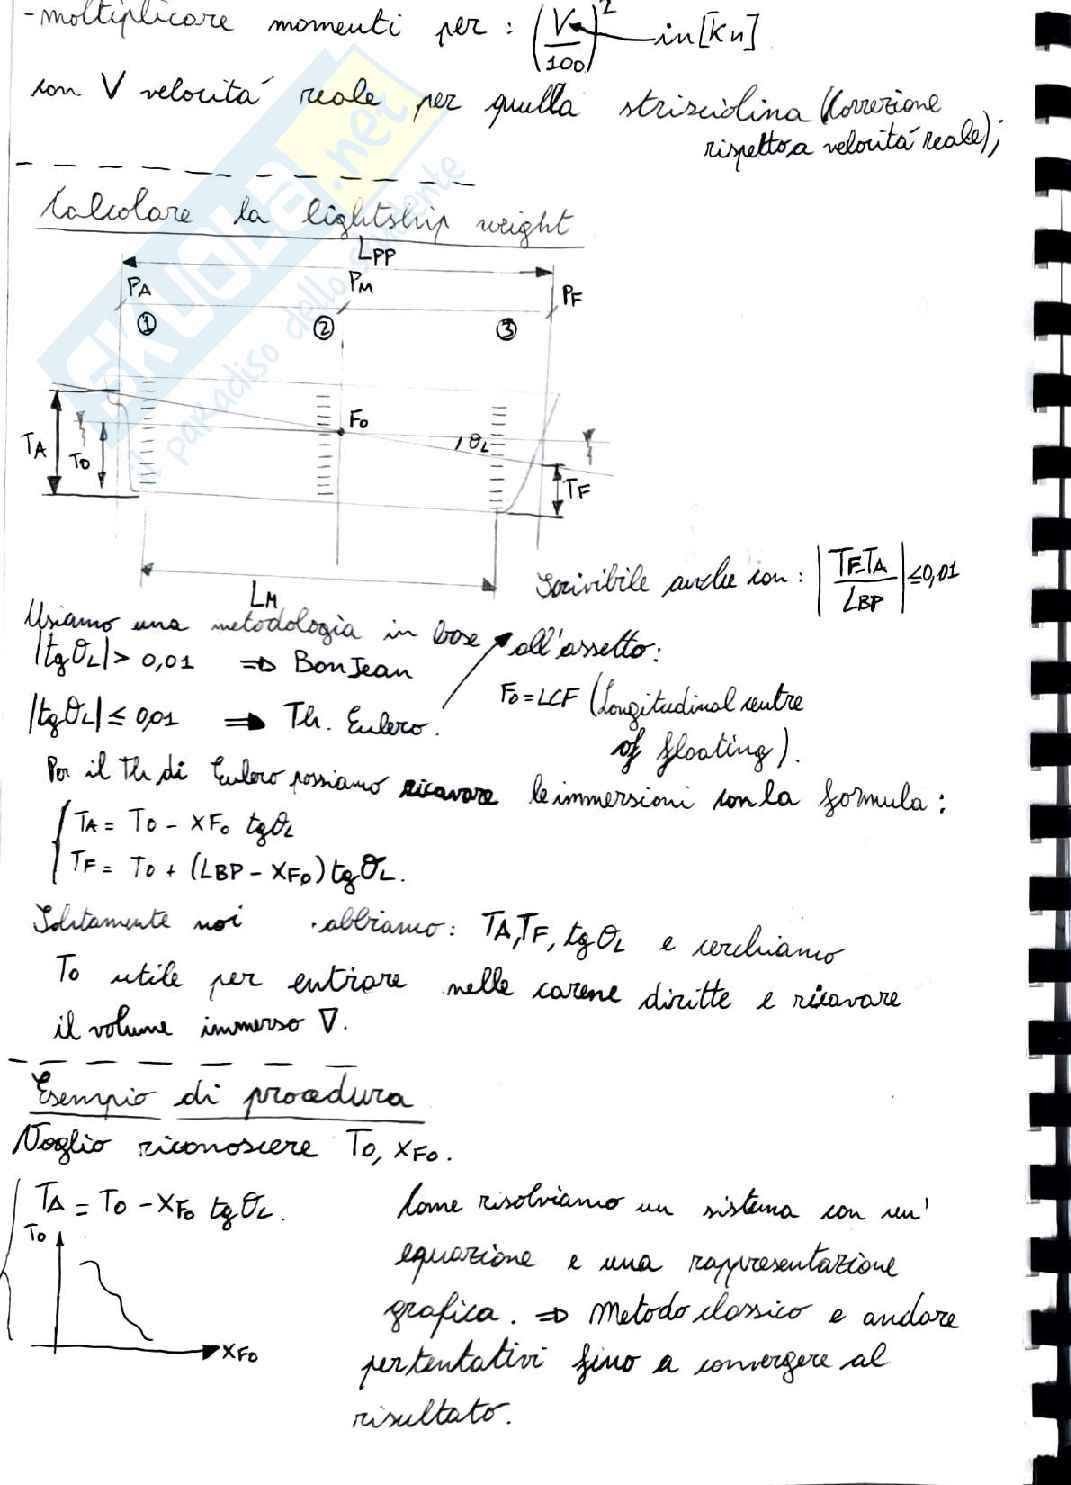 - moltiplicare momenti per : (V/100)² in [Kn]
con V velocità reale per quella strisciolina (correzione
rispetto a velocità reale);
Calcolare la lightship weight
LPP
PA PM PF
① ② ③
F0
TA T0 θL TF
LM
Scrivibile anche con : |TF-TA / LBP| ≤ 0,01
Usiamo una metodologia in base all'assetto:
|tgθL| > 0,01 ⇒ BonJean
F0 = LCF (Longitudinal centre
|tgθL| ≤ 0,01 ⇒ Th. Eulero.
of floating).
Per il th di Eulero possiamo ricavare le immersioni con la formula :
TA = T0 - XF0 tgθL
TF = T0 + (LBP - XF0) tgθL.
Solitamente noi abbiamo: TA, TF, tgθL e cerchiamo
T0 utile per entrare nelle carene diritte e ricavare
il volume immerso ∇.
Esempio di procedura
Voglio riconoscere T0, XF0.
TA = T0 - XF0 tgθL.
T0
XF0
Come risolviamo un sistema con un'
equazione e una rappresentazione
grafica. ⇒ Metodo classico e andare
per tentativi fino a convergere al
risultato.
SKUOLA.net
il paradiso dello studente